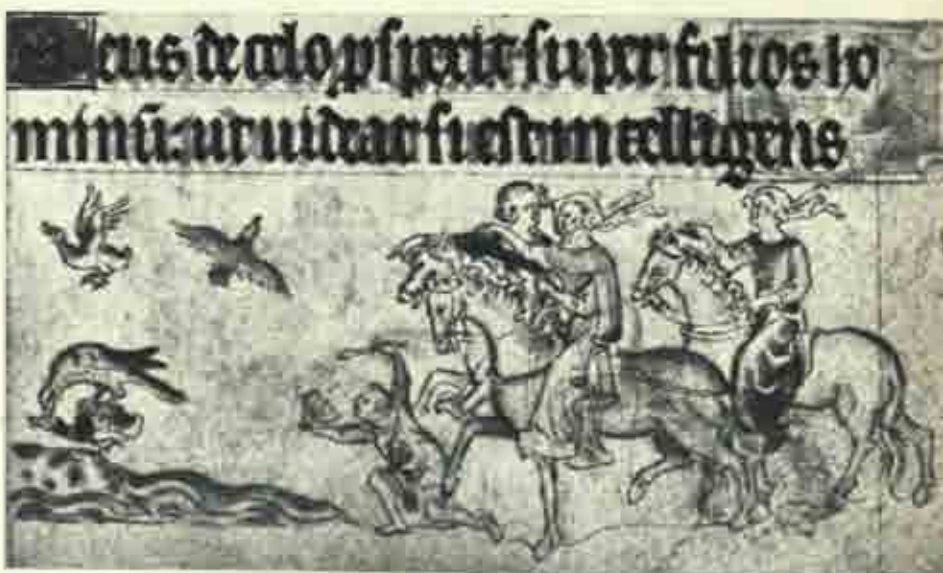 Deus de celo pspexit super filios ho
minū: ut uideat si est intelligens